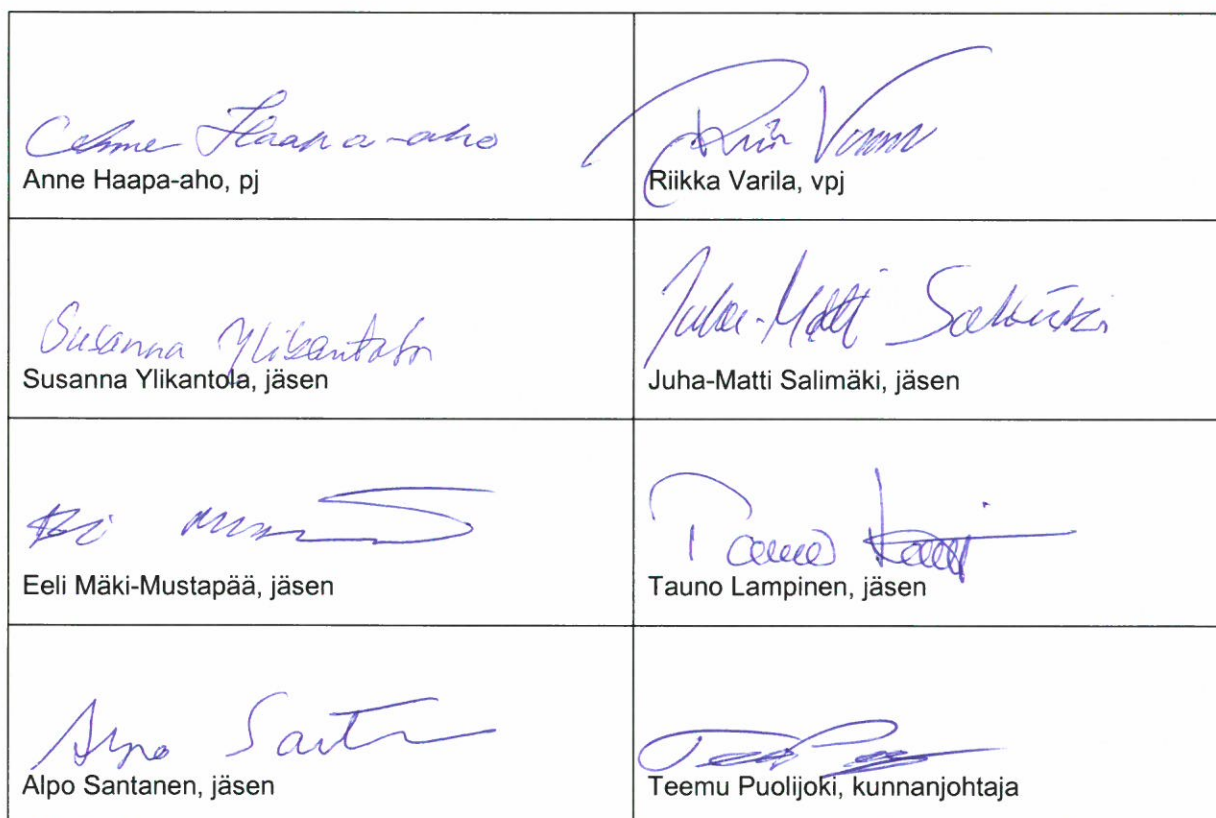 Anne Haapa-aho
Anne Haapa-aho, pj
Riikka Varila, vpj
Susanna Ylikantola
Susanna Ylikantola, jäsen
Juha-Matti Salimäki
Juha-Matti Salimäki, jäsen
Eeli Mäki-Mustapää, jäsen
Tauno
Tauno Lampinen, jäsen
Alpo
Alpo Santanen, jäsen
Teemu Puolijoki, kunnanjohtaja